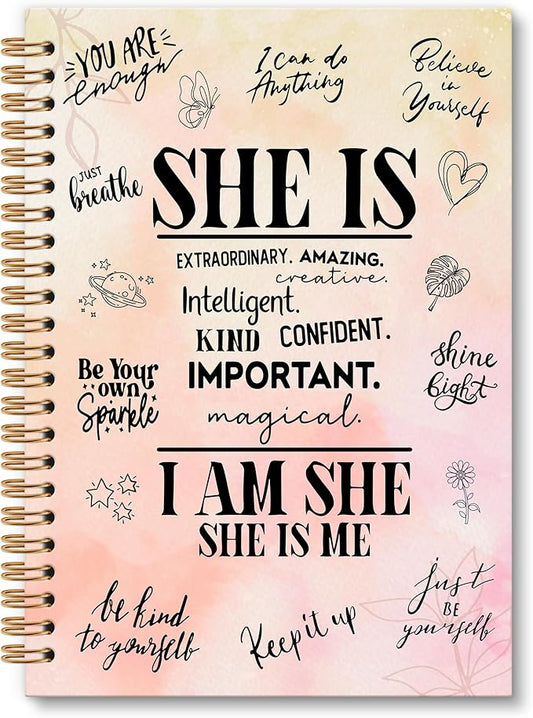 YOU ARE
enough
I can do
Anything
Believe
in
Yourself
JUST
breathe
SHE IS
EXTRAORDINARY. AMAZING.
creative.
Intelligent.
KIND CONFIDENT.
IMPORTANT.
magical.
Be Your
own
Sparkle
shine
bight
I AM SHE
SHE IS ME
be kind
to yourself
Keep it up
just
BE
yourself